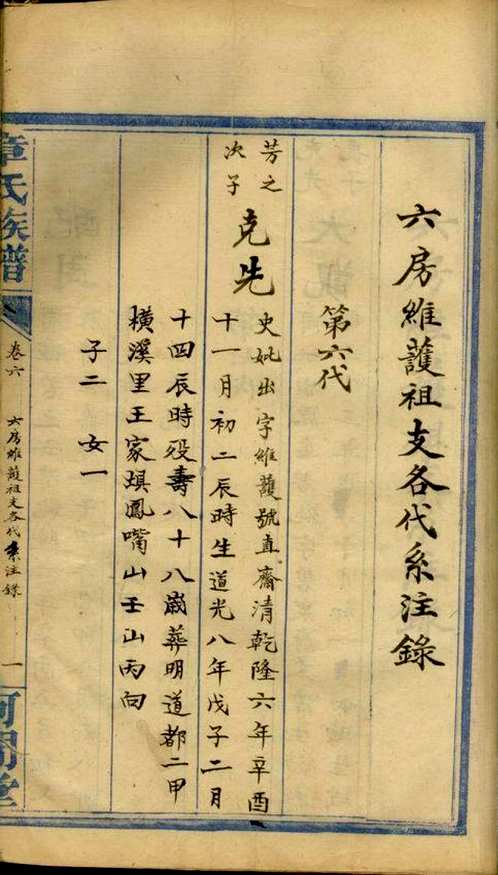 六房維護祖支各代系注錄
第六代
芳之
次子
克先
史妣出字維護號直齋清乾隆六年辛酉
十一月初二辰時生道光八年戊子二月
十四辰時歿壽八十八歲葬明道都二甲
橫溪里王家塤鳳嘴山壬山丙向
子二 女一
章氏族譜
卷六
六房維護祖支各代系注錄
一
河間堂